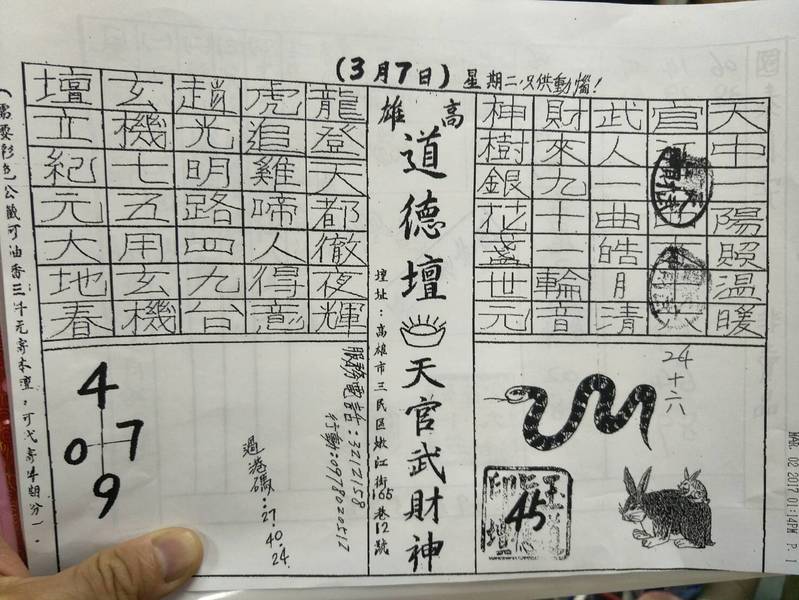 (3月7日) 星期二,只供動惱!
天中一陽照溫暖
官
武人一曲皓月清
財來九十二輪音
神樹銀花盞世元
24
十六
45
高雄
道德壇
天官武財神
壇址:高雄市三民區嫩江街165巷12號
龍登天都徹夜輝
虎追雞啼人得意
趙光明路四九台
玄機七五用玄機
壇立紀元大地春
服務電話:3212158
行動:0978020517
過港碼:27 40 24
4
0 7
9
MAR. 02 2017 01:14PM P. 1